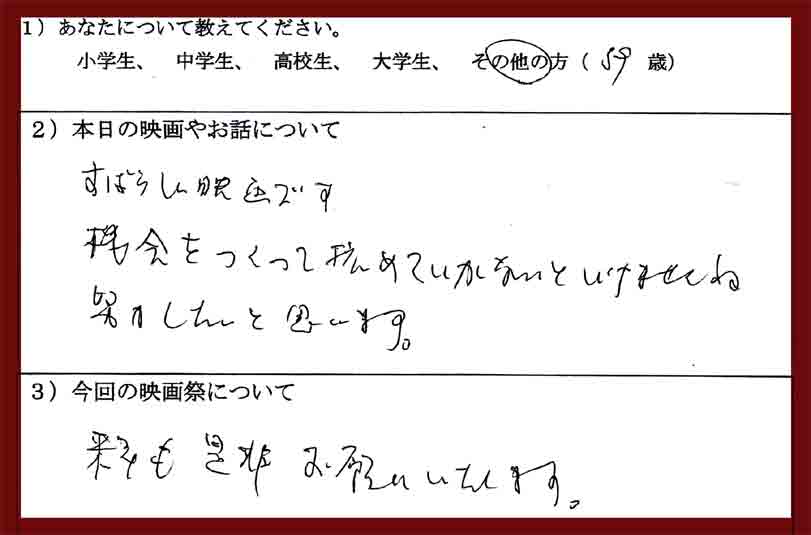 1）あなたについて教えてください。
小学生、 中学生、 高校生、 大学生、 その他の方（ 59 歳）
2）本日の映画やお話について
すばらしい映画です
機会をつくって拡めていかないといけませんね
努力したいと思います。
3）今回の映画祭について
来年も是非お願いいたします。